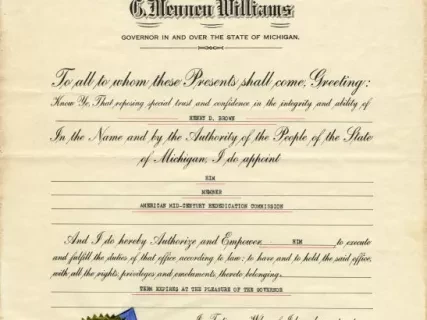 G. Mennen Williams
GOVERNOR IN AND OVER THE STATE OF MICHIGAN.
To all to whom these Presents shall come, Greeting:
Know Ye, That reposing special trust and confidence in the integrity and ability of
HENRY D. BROWN
In the Name and by the Authority of the People of the State
of Michigan, I do appoint
HIM
MEMBER
AMERICAN MID-CENTURY REDEDICATION COMMISSION
And I do hereby Authorize and Empower HIM to execute
and fulfill the duties of that office, according to law; to have and to hold the said office,
with all the rights, privileges and emoluments, thereto belonging.
TERM EXPIRES AT THE PLEASURE OF THE GOVERNOR